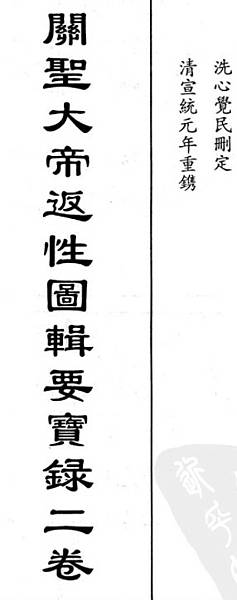 洗心覺民刪定
清宣統元年重鐫
關聖大帝返性圖輯要寶録二卷